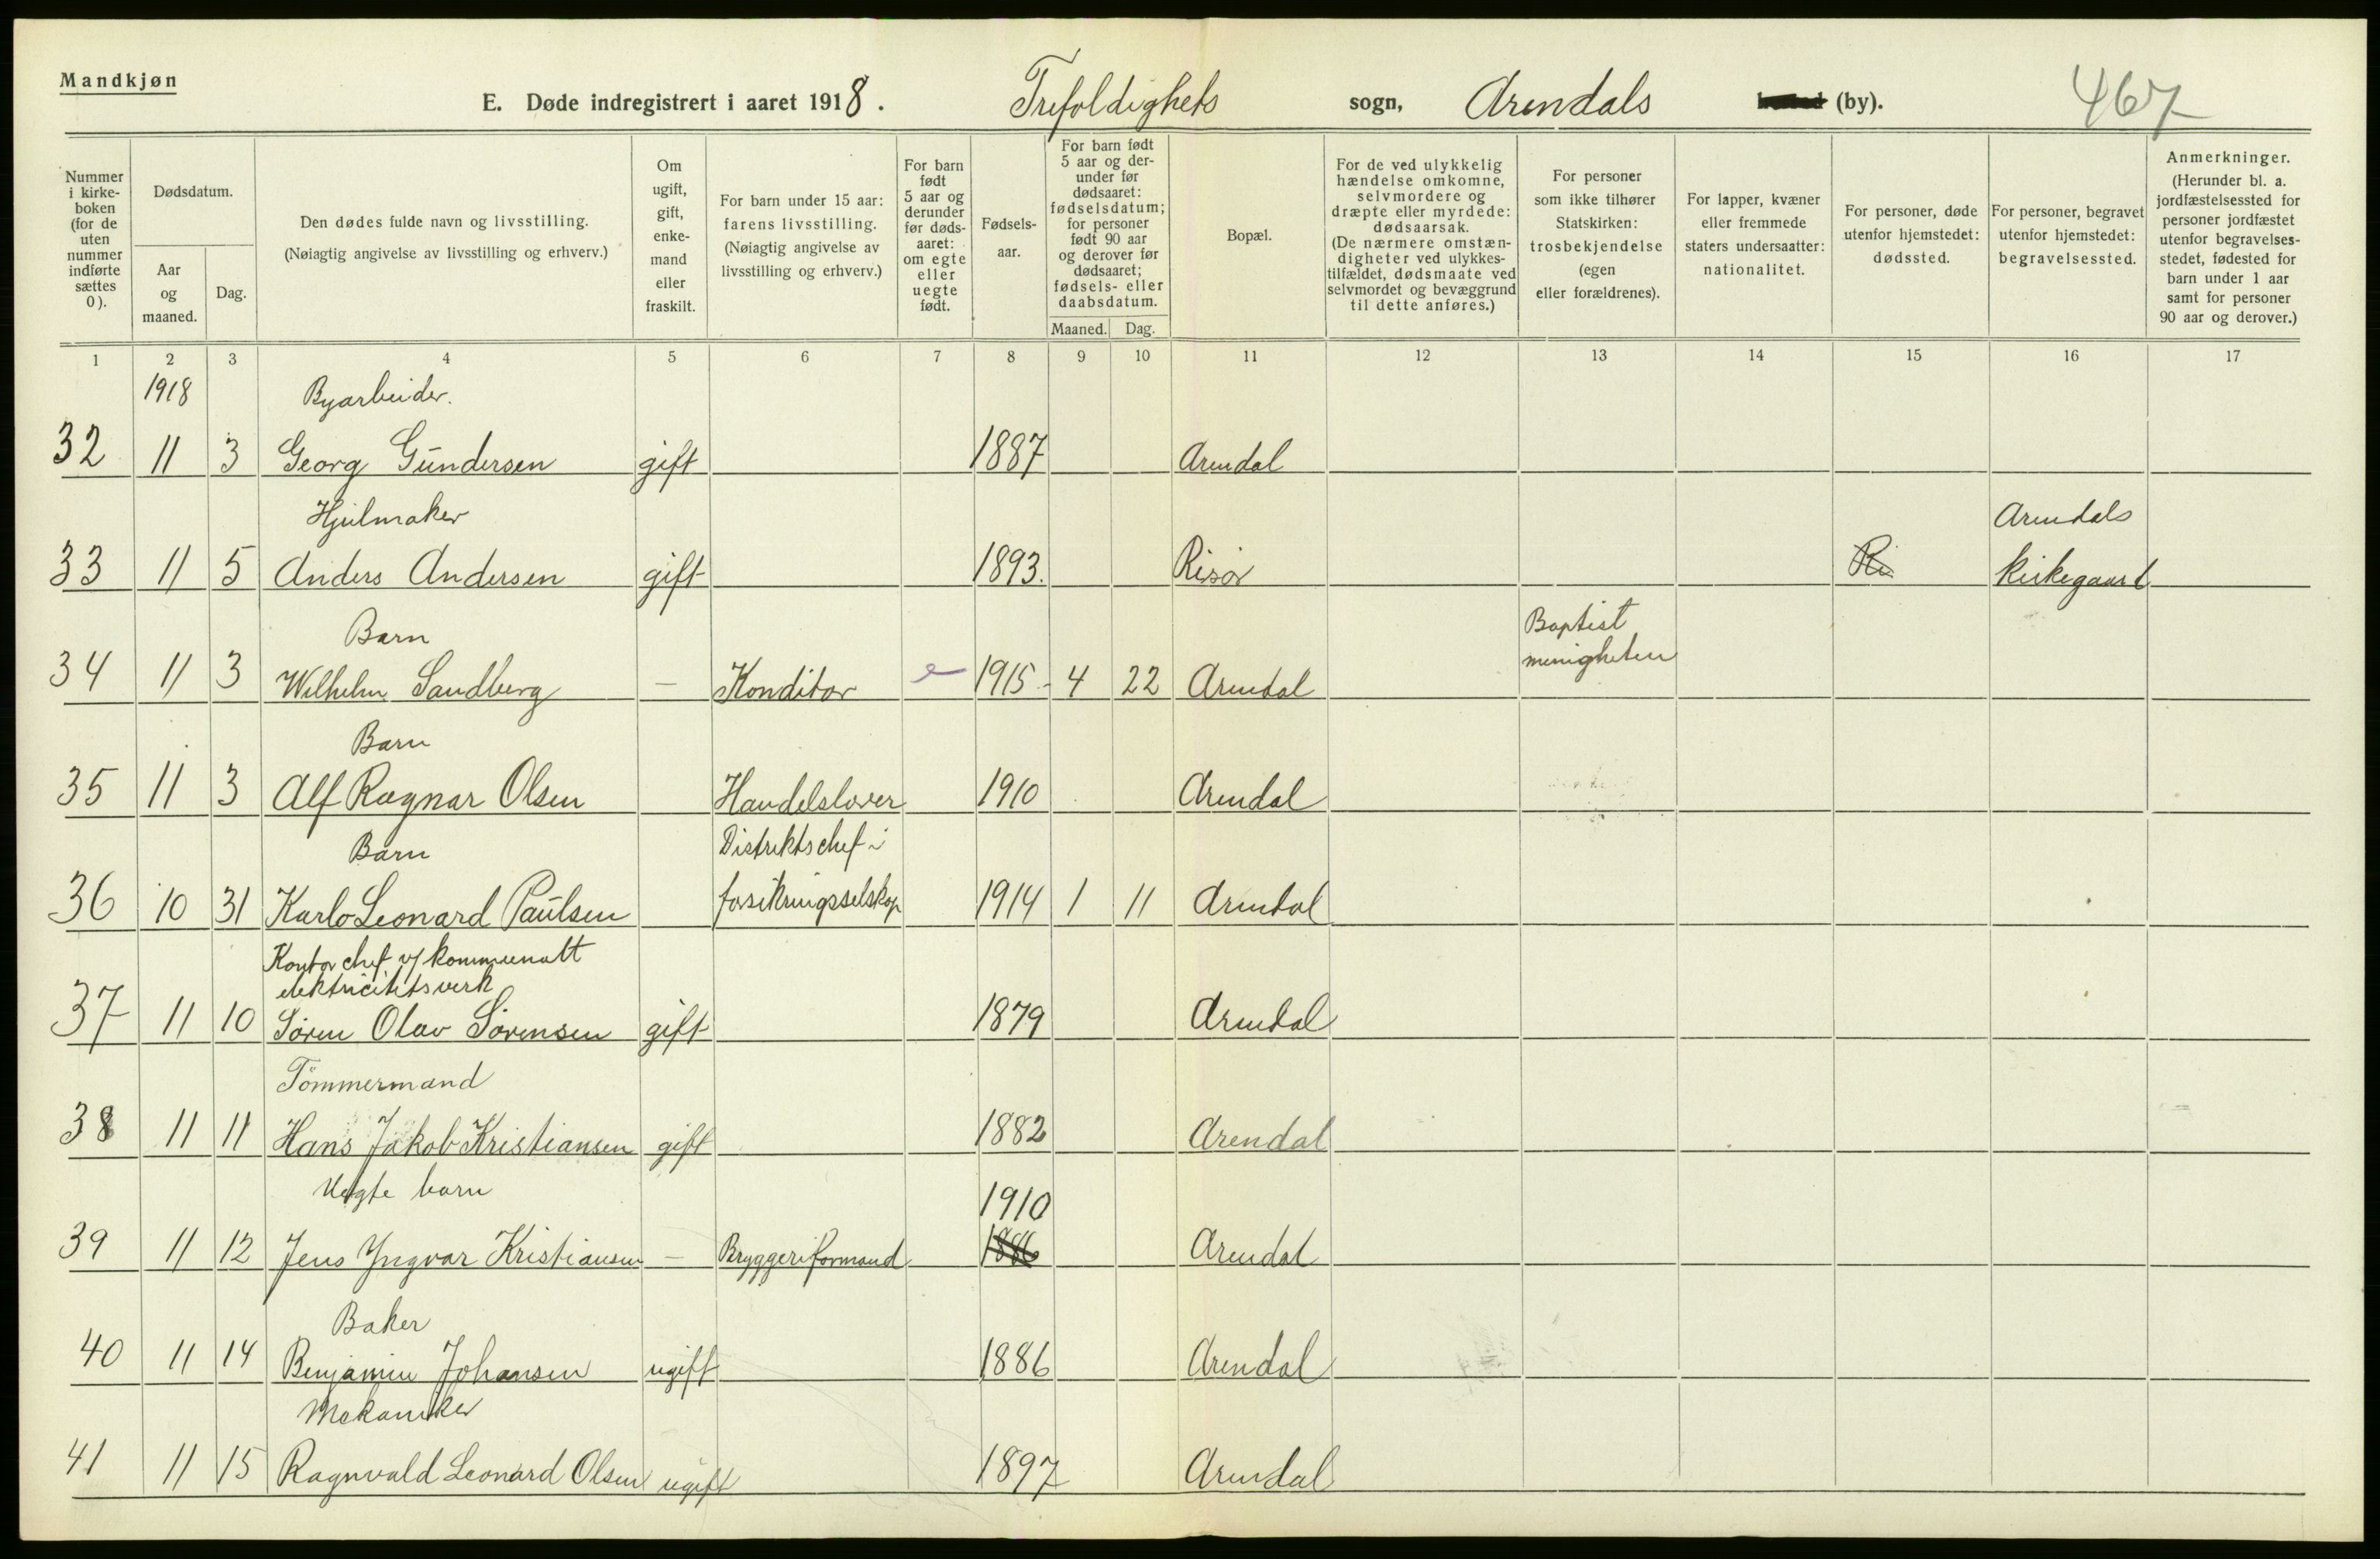 Mandkjøn
E. Døde indregistrert i aaret 1918. Trefoldighets sogn, Arendals (by). 467
Nummer i kirkeboken (for de uten nummer indførte sættes 0).
Dødsdatum.
Aar og maaned.
Dag.
Den dødes fulde navn og livsstilling.
(Nøiagtig angivelse av livsstilling og erhverv.)
Om ugift, gift, enkemand eller fraskilt.
For barn under 15 aar: farens livsstilling.
(Nøiagtig angivelse av livsstilling og erhverv.)
For barn født 5 aar og derunder før dødsaaret: om egte eller uegte født.
Fødselsaar.
For barn født 5 aar og derunder før dødsaaret: fødselsdatum; for personer født 90 aar og derover før dødsaaret; fødsels- eller daabsdatum.
Maaned. Dag.
Bopæl.
For de ved ulykkelig hændelse omkomne, selvmordere og dræpte eller myrdede: dødsaarsak.
(De nærmere omstændigheter ved ulykkestilfældet, dødsmaate ved selvmordet og bevæggrund til dette anføres.)
For personer som ikke tilhører Statskirken: trosbekjendelse (egen eller forældrenes).
For lapper, kvæner eller fremmede staters undersaatter: nationalitet.
For personer, døde utenfor hjemstedet: dødssted.
For personer, begravet utenfor hjemstedet: begravelsessted.
Anmerkninger.
(Herunder bl. a. jordfæstelsessted for personer jordfæstet utenfor begravelsesstedet, fødested for barn under 1 aar samt for personer 90 aar og derover.)
1 2 3 4 5 6 7 8 9 10 11 12 13 14 15 16 17
1918 Byarbeider.
32 11 3 Georg Gundersen gift 1887 Arendal
Hjulmaker Arendals
33 11 5 Anders Andersen gift 1893. Risør Ri kirkegaard
Barn Baptist
menigheten
34 11 3 Wilhelm Sandberg — Konditor e 1915 - 4 22 Arendal
Barn
35 11 3 Alf Ragnar Olsen Handelslærer 1910 Arendal
Barn Distriktschef i
36 10 31 Karlo Leonard Paulsen forsikringsselskap 1914 1 11 Arendal
Kontorchef v/ kommunalt
elektricitetsverk
37 11 10 Søren Olav Sørensen gift 1879 Arendal
Tömmermand
38 11 11 Hans Jakob Kristiansen gift 1882 Arendal
Uegte barn 1910
39 11 12 Jens Yngvar Kristiansen — Bryggeriformand 1886 Arendal
Baker
40 11 14 Benjamin Johansen ugift 1886 Arendal
Mekaniker
41 11 15 Ragnvald Leonard Olsen ugift 1897 Arendal